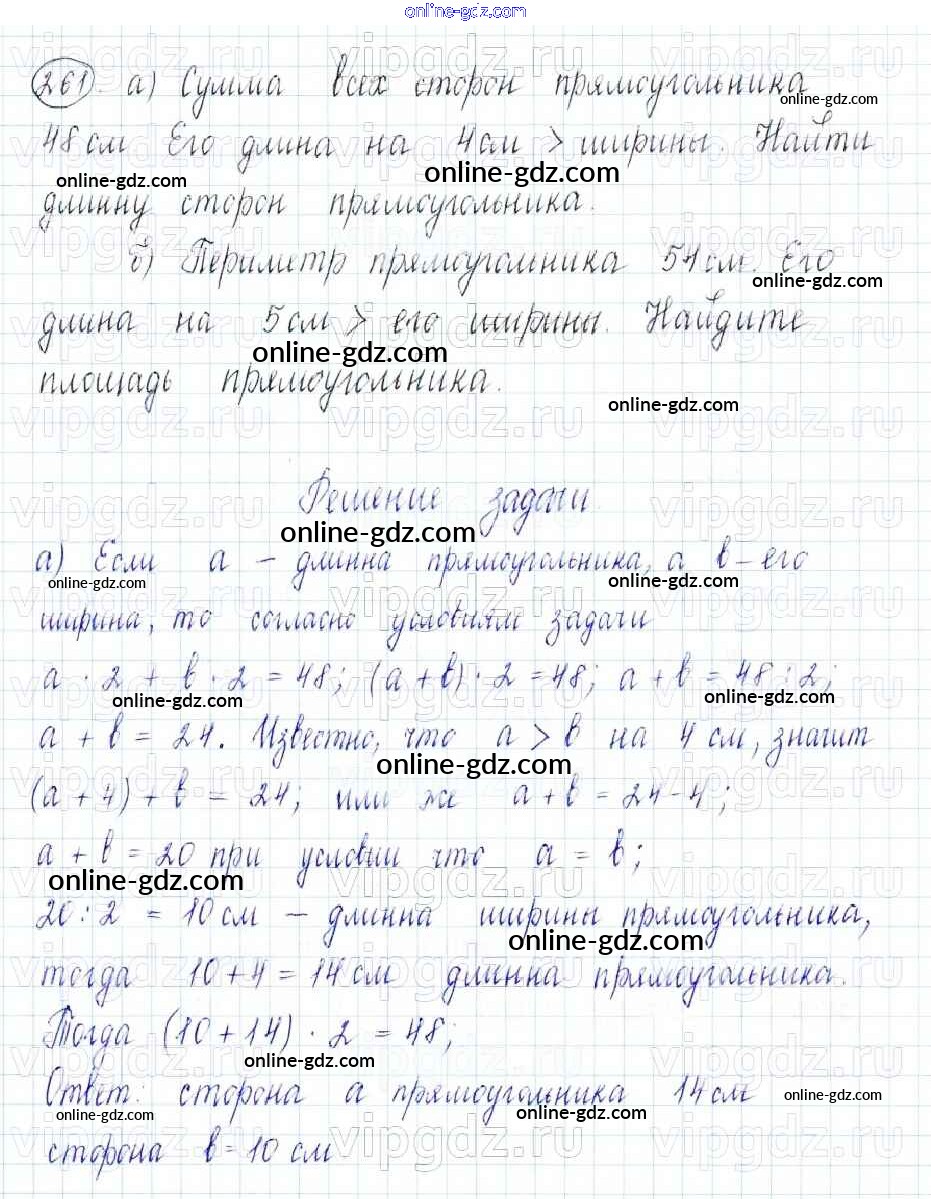 online-gdz.com
261. а) Сумма всех сторон прямоугольника
online-gdz.com
48 см. Его длина на 4 см > ширины. Найти
online-gdz.com online-gdz.com
длинну сторон прямоугольника.
б) Периметр прямоугольника 54 см. Его
online-gdz.com
длина на 5 см > его ширины. Найдите
online-gdz.com
площадь прямоугольника.
online-gdz.com
Решение задачи
online-gdz.com
а) Если a – длинна прямоугольника, а b – его
online-gdz.com online-gdz.com
ширина, то согласно условиям задачи
a · 2 + b · 2 = 48; (a + b) · 2 = 48; a + b = 48 : 2;
online-gdz.com online-gdz.com
a + b = 24. Известно, что a > b на 4 см, значит
online-gdz.com
(a + 4) + b = 24; или же a + b = 24 - 4;
a + b = 20 при условии что a = b;
online-gdz.com
20 : 2 = 10 см – длинна ширины прямоугольника,
online-gdz.com
тогда 10 + 4 = 14 см длинна прямоугольника.
Тогда (10 + 14) · 2 = 48;
online-gdz.com
Ответ: сторона a прямоугольника 14 см
online-gdz.com online-gdz.com online-gdz.com
сторона b = 10 см
vipgdz.ru